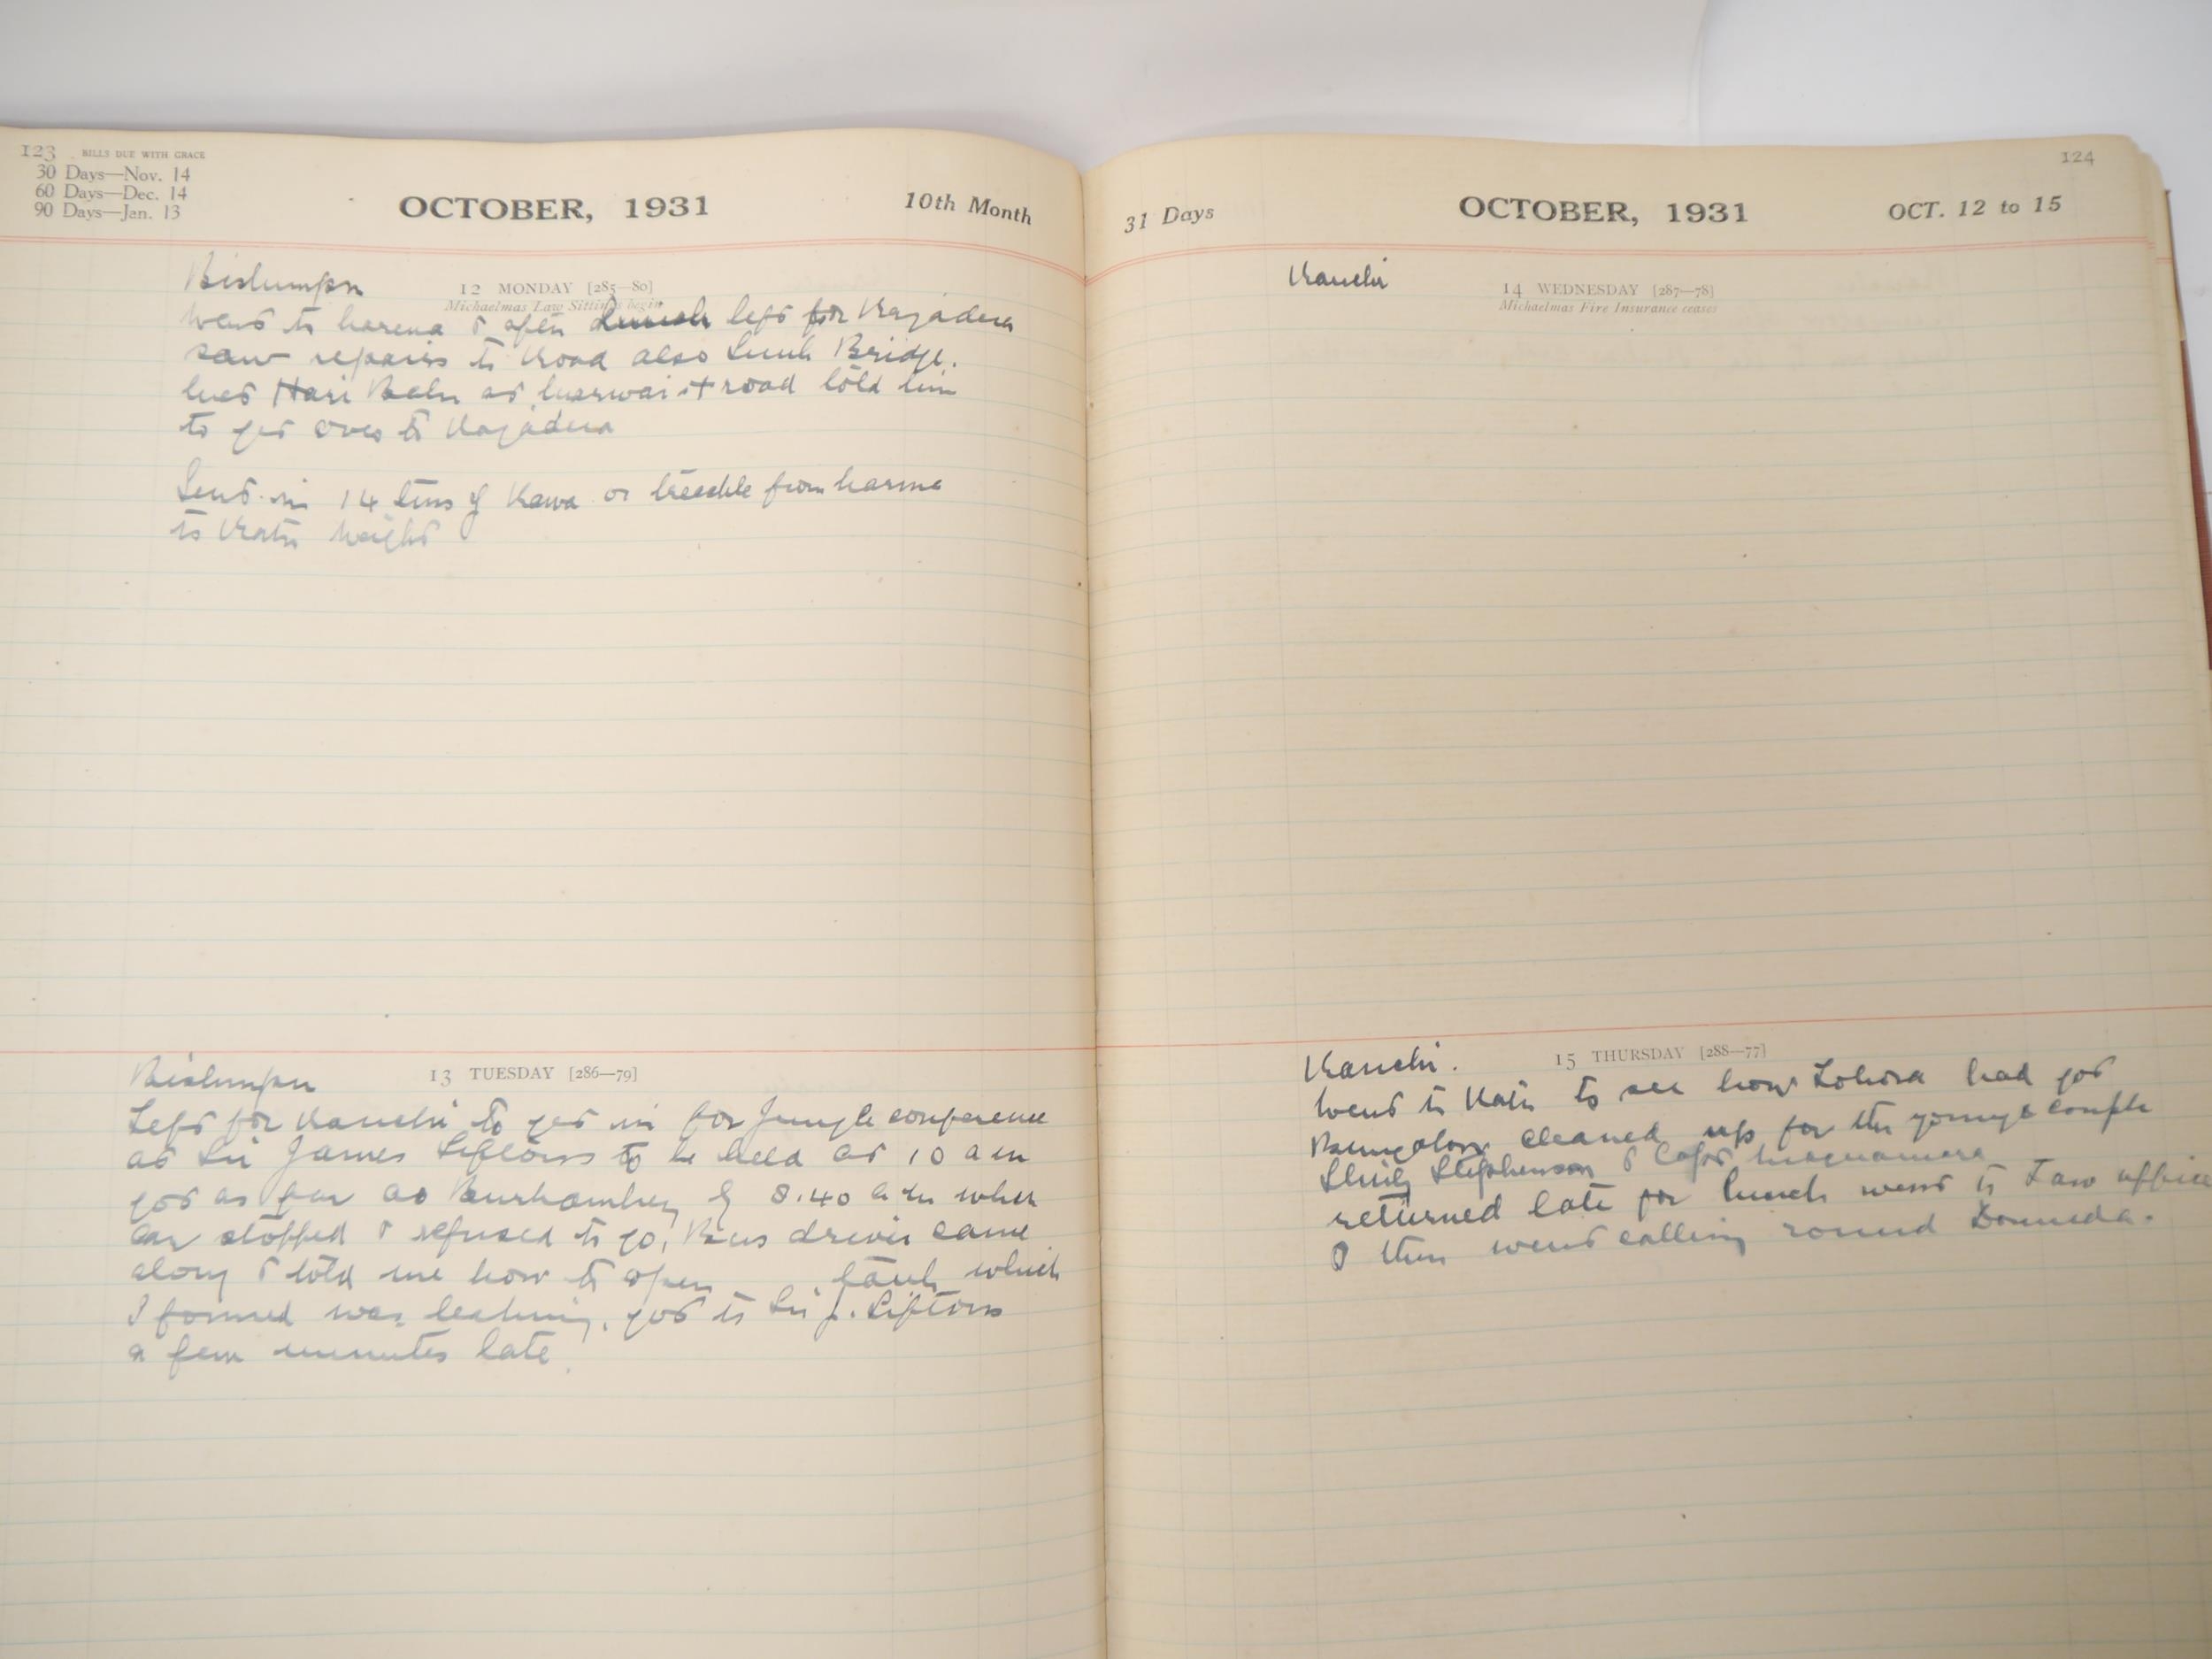 123 BILLS DUE WITH GRACE
30 Days—Nov. 14
60 Days—Dec. 14
90 Days—Jan. 13
OCTOBER, 1931
10th Month
12 MONDAY [285—80]
Michaelmas Law Sittings begin
went to & after lunch left for
saw repairs to Road also Bridge.
Hari road told him
to get over to
Sent in 14 tins of or treacle from
to weight
13 TUESDAY [286—79]
Left for Ranchi to get in for Jungle conference
at Sir James Siftons to be held at 10 am
got as far as by 8.40 am when
car stopped & refused to go, Bus driver came
along & told me how to open which
I found was leaking, got to Sir J. Siftons
a few minutes late
124
31 Days
OCTOBER, 1931
OCT. 12 to 15
Ranchi
14 WEDNESDAY [287—78]
Michaelmas Fire Insurance ceases
Ranchi.
15 THURSDAY [288—77]
went to to see how had got
Bungalow cleaned up for the young couple
Stephenson & Capt
returned late for lunch went to Law office
& then went calling round Doranda.